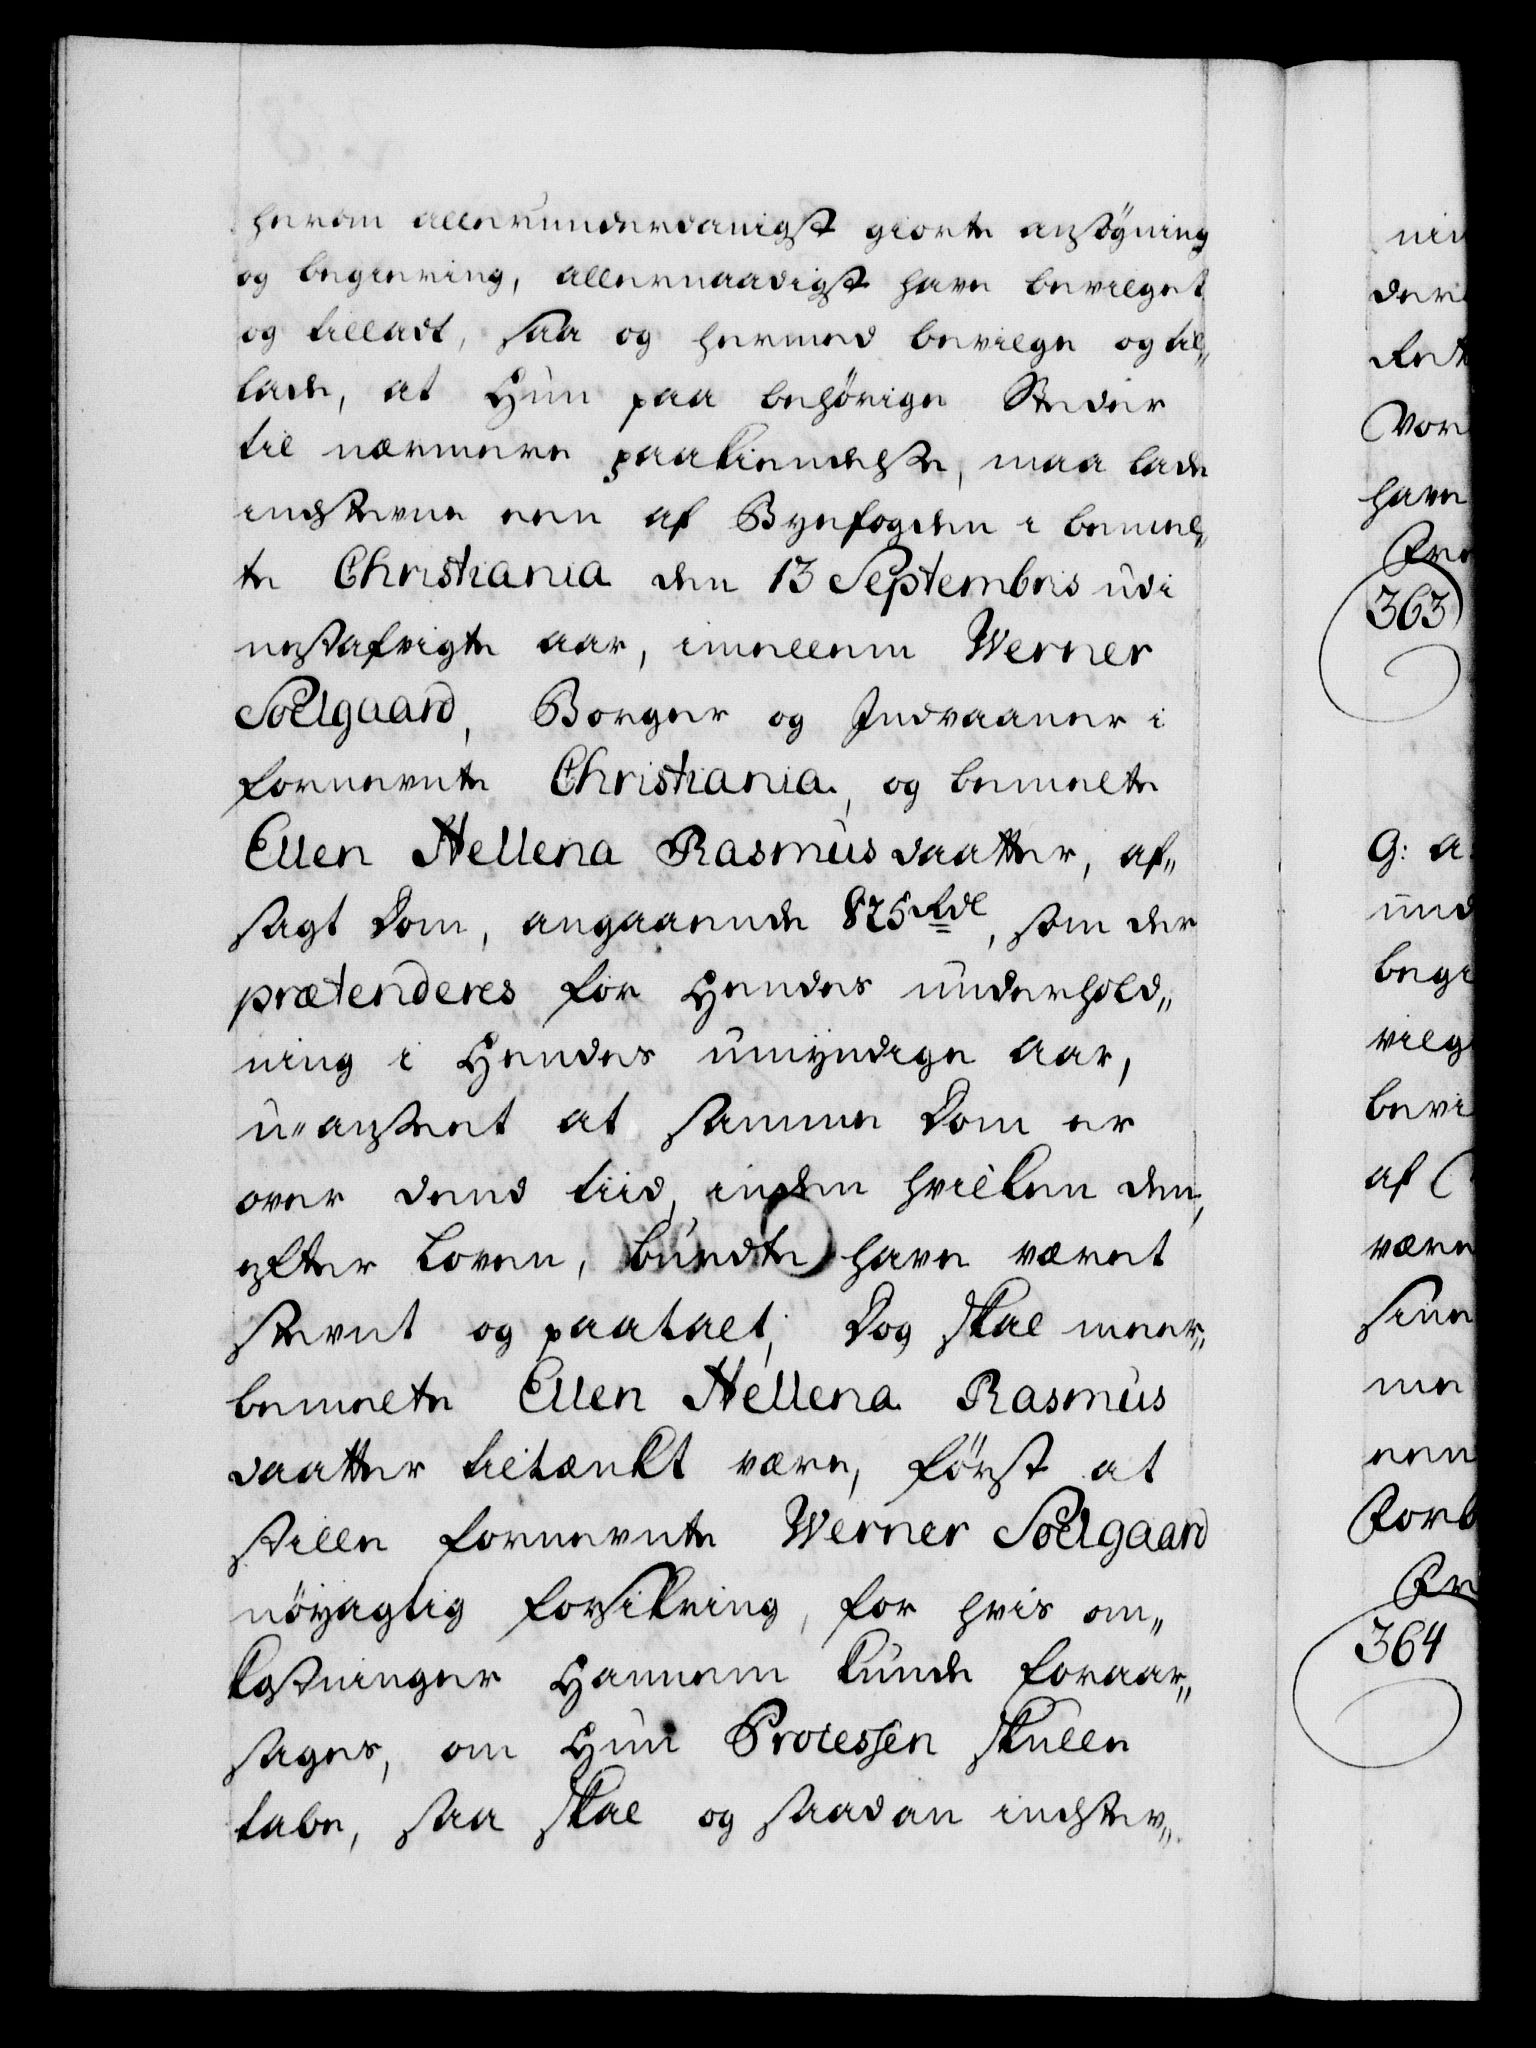 herom allerunderdanigst giorte ansøgning
og begiering, allernaadigst have bevilget
og tilladt, saa og hermed bevilge og til„
lade, at Hun paa behörige Steder
til nærmere paakiendelse, maa lade
indstevne een af Byefogden i bemel„
te Christiania den 13 Septembris udi
nestafvigte aar, imellem Werner
Soelgaard, Borger og Indvaaner i
fornevnte Christiania, og bemelte
Ellen Hellena Rasmus daatter, af„
sagt Dom, angaaende 875 Rdl, som der
prætenderes for Hendes underhold„
ning i Hendes umyndige Aar,
u-anseet at samme Dom er
over dend tiid, inden hvilken den,
efter Loven, burdte have været
stevnt og paatalt; Dog skal meer„
bemelte Ellen Hellena Rasmus
daatter tiltænkt være, först at
stille fornevnte Werner Soelgaard
nöyagtig forsikring, for hvis om„
kostninger Hannem kunde foraar„
sages, om Hun Processen skulle
tabe, saa skal og saadan indstev„
363
364